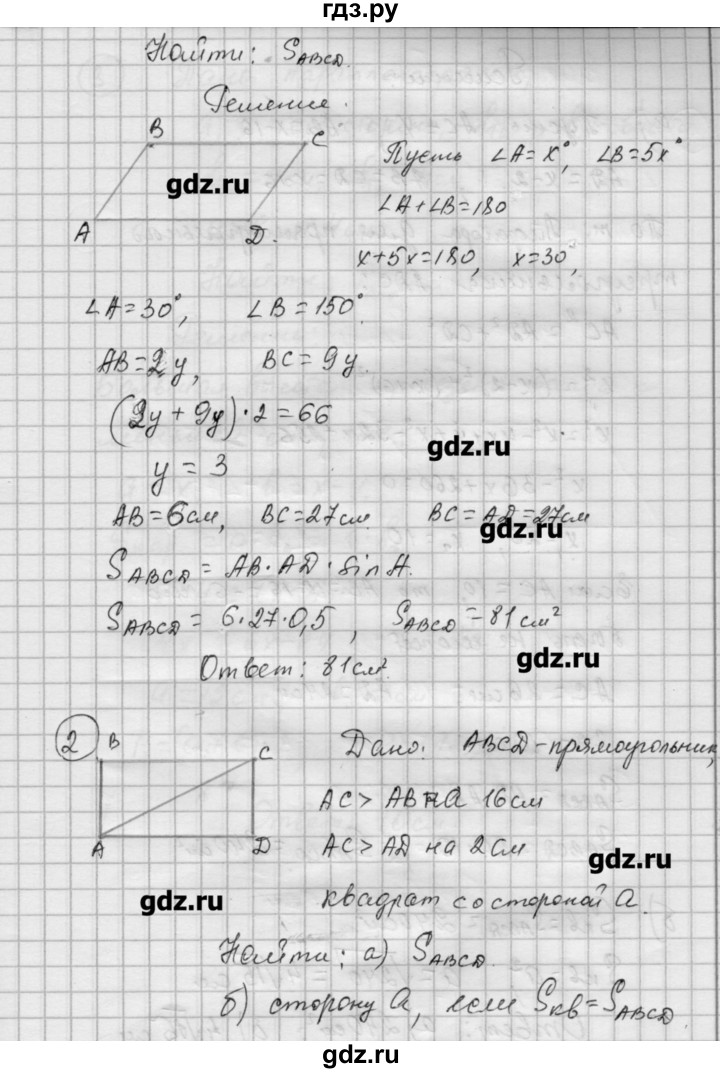 гдз.ру
Найти: S_ABCD.
Решение.
B C
gdz.ru
A D.
Пусть ∠A=x°, ∠B=5x°
∠A+∠B=180
x+5x=180, x=30°,
∠A=30°, ∠B=150°.
AB=2y, BC=9y.
(2y+9y)·2=66
gdz.ru
y=3
AB=6см, BC=27см BC=AD=27см
gdz.ru
S_ABCD = AB·AD·sinA.
S_ABCD = 6·27·0,5, S_ABCD=81см²
Ответ: 81см².
gdz.ru
2 B C
A D
Дано: ABCD-прямоугольник,
AC>AB на 16см
AC>AD на 2см
gdz.ru
квадрат со стороной a.
gdz.ru
Найти: а) S_ABCD.
б) сторону a, если S_кв=S_ABCD.
gdz.ru